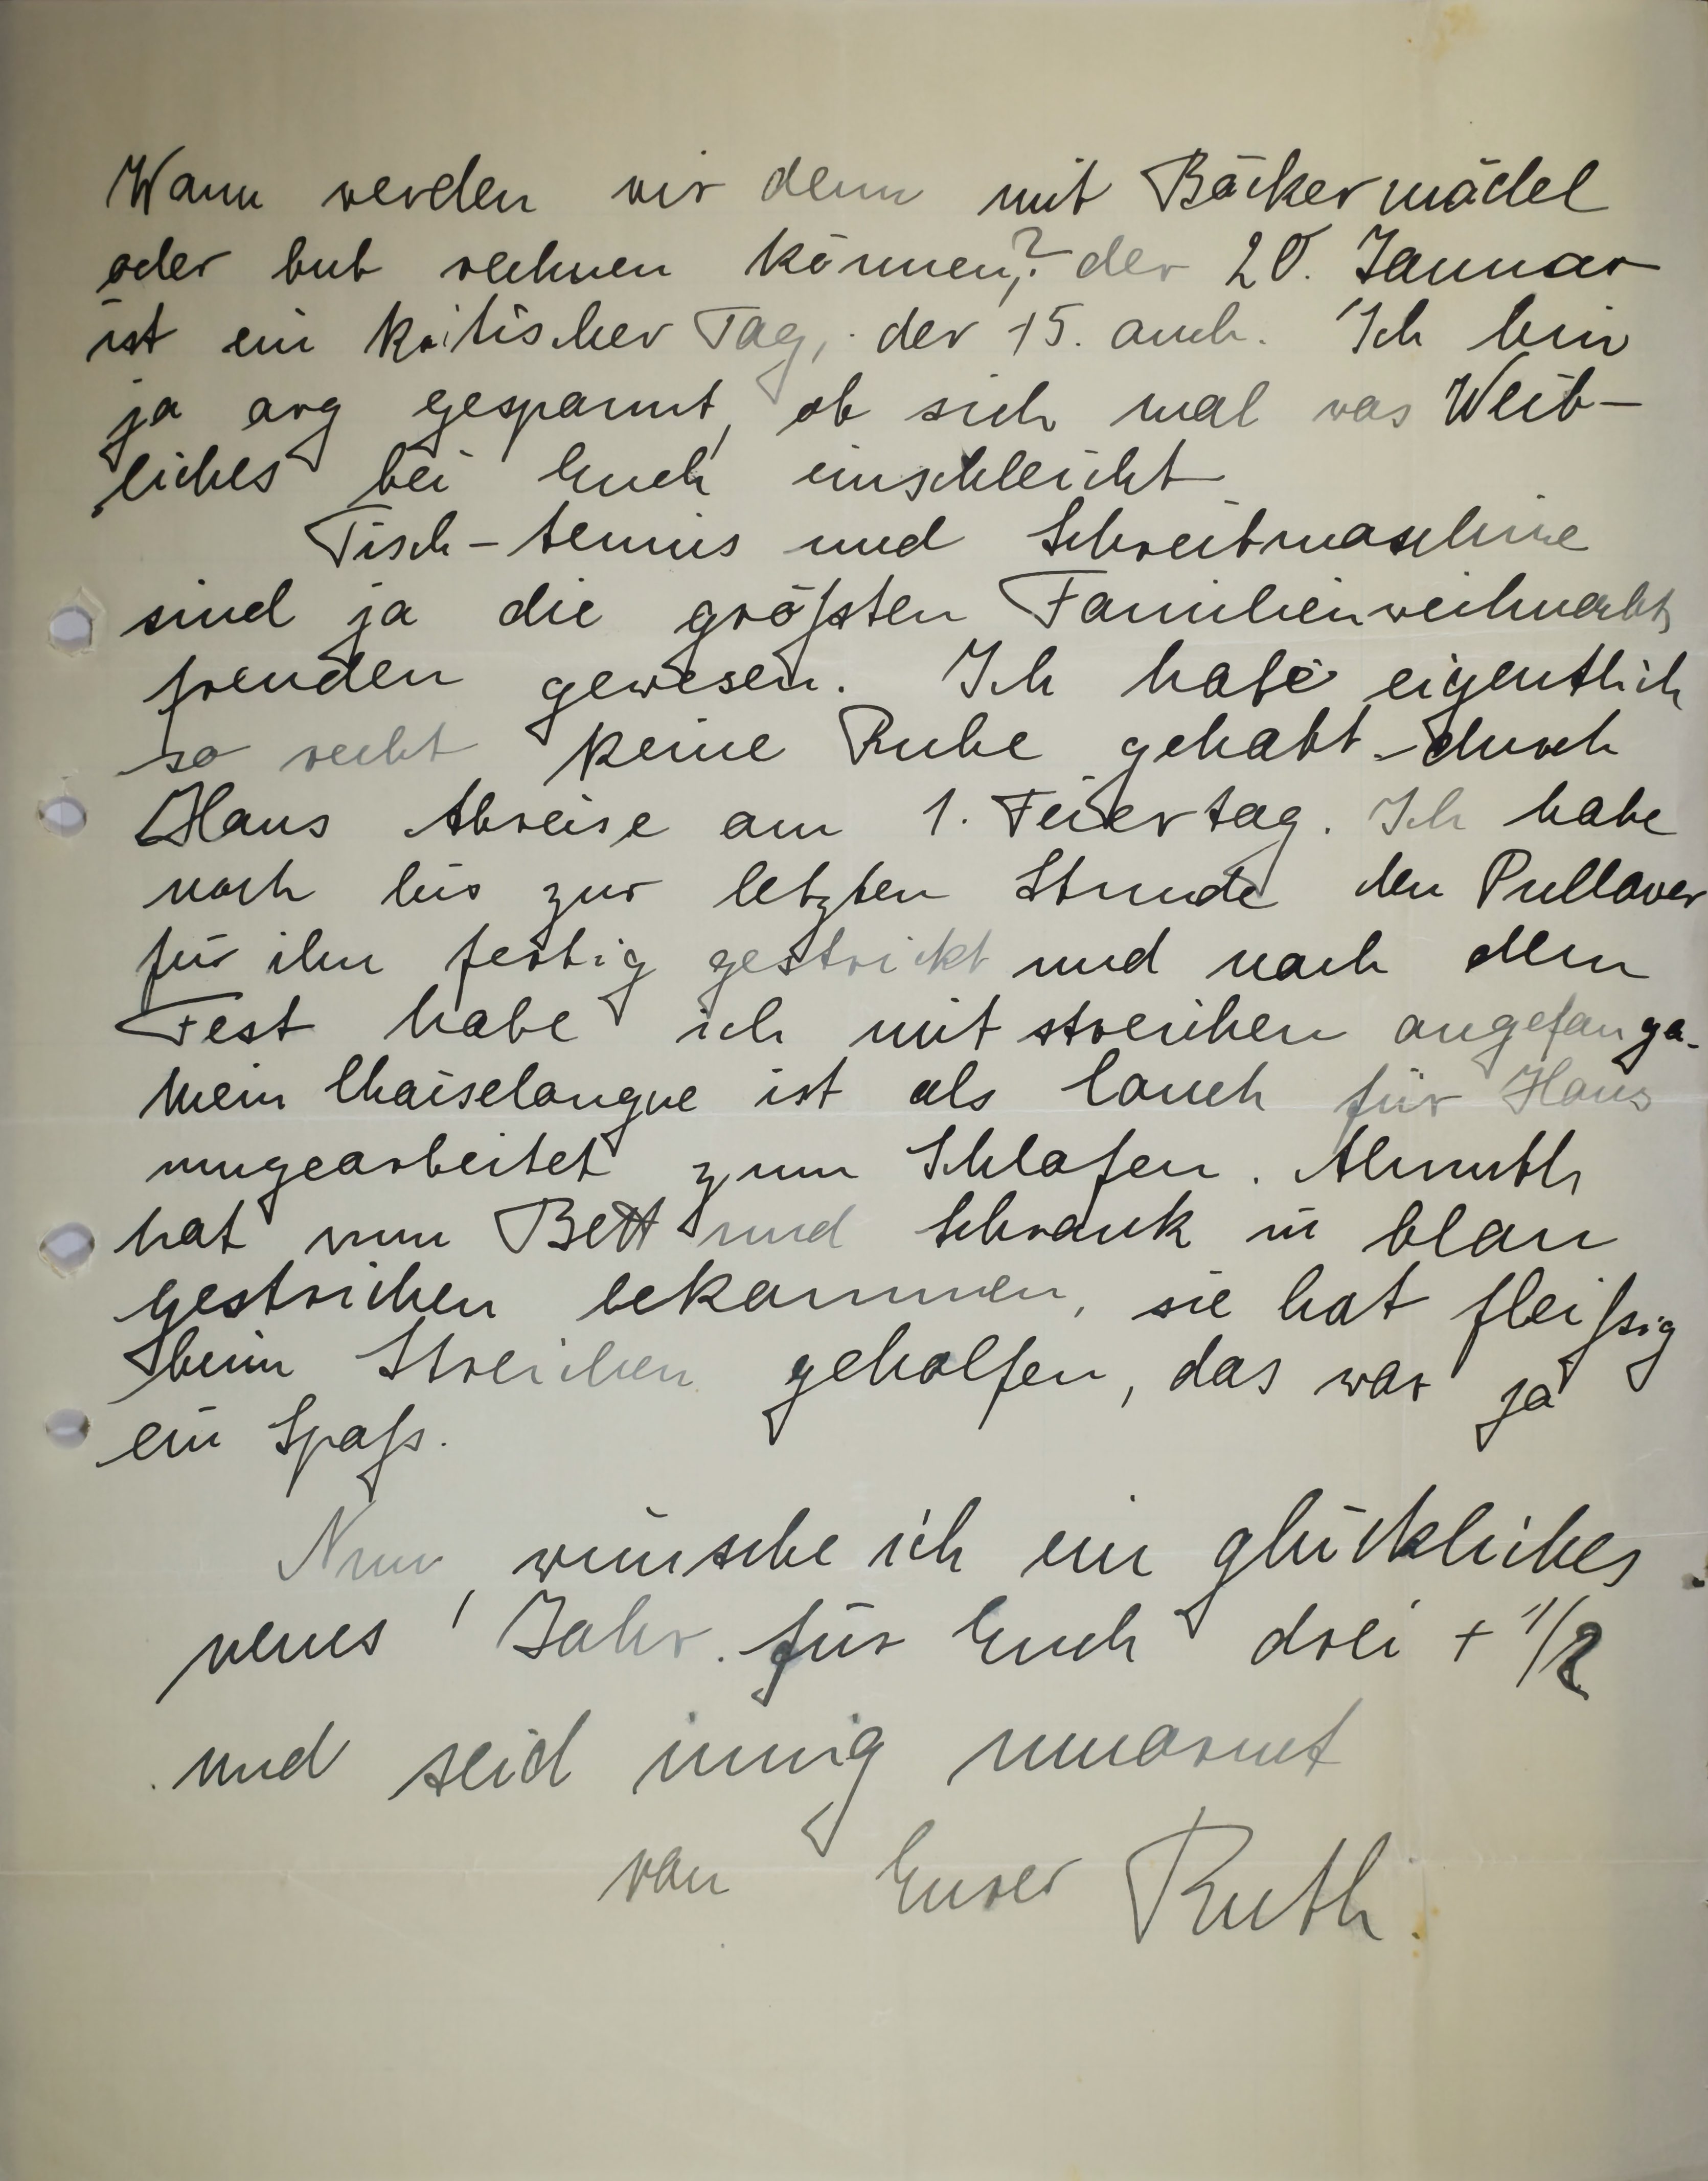 Wann werden wir denn mit Bäckermädel
oder bub rechnen können? der 20. Januar
ist ein kritischer Tag, der 15. auch. Ich bin
ja arg gespannt, ob sich mal was Weib-
liches bei Euch einschleicht.
Tisch-tennis und Schreibmaschine
sind ja die größten Familienweihnachts
freuden gewesen. Ich habe eigentlich
so recht keine Ruhe gehabt durch
Hans Abreise am 1. Feiertag. Ich habe
noch bis zur letzten Stunde den Pullover
für ihn fertig gestrickt und nach dem
Fest habe ich mit streichen angefanga.
Mein Chaiselongue ist als Couch für Hans
umgearbeitet zum Schlafen. Almuth
hat nun Bett und Schrank in blau
gestrichen bekommen, sie hat fleißig
beim Streichen geholfen, das war ja
ein Spaß.
Nun, wünsche ich ein glückliches
neues Jahr für Euch drei + 1/2
und seid innig umarmt
von Eurer Ruth.